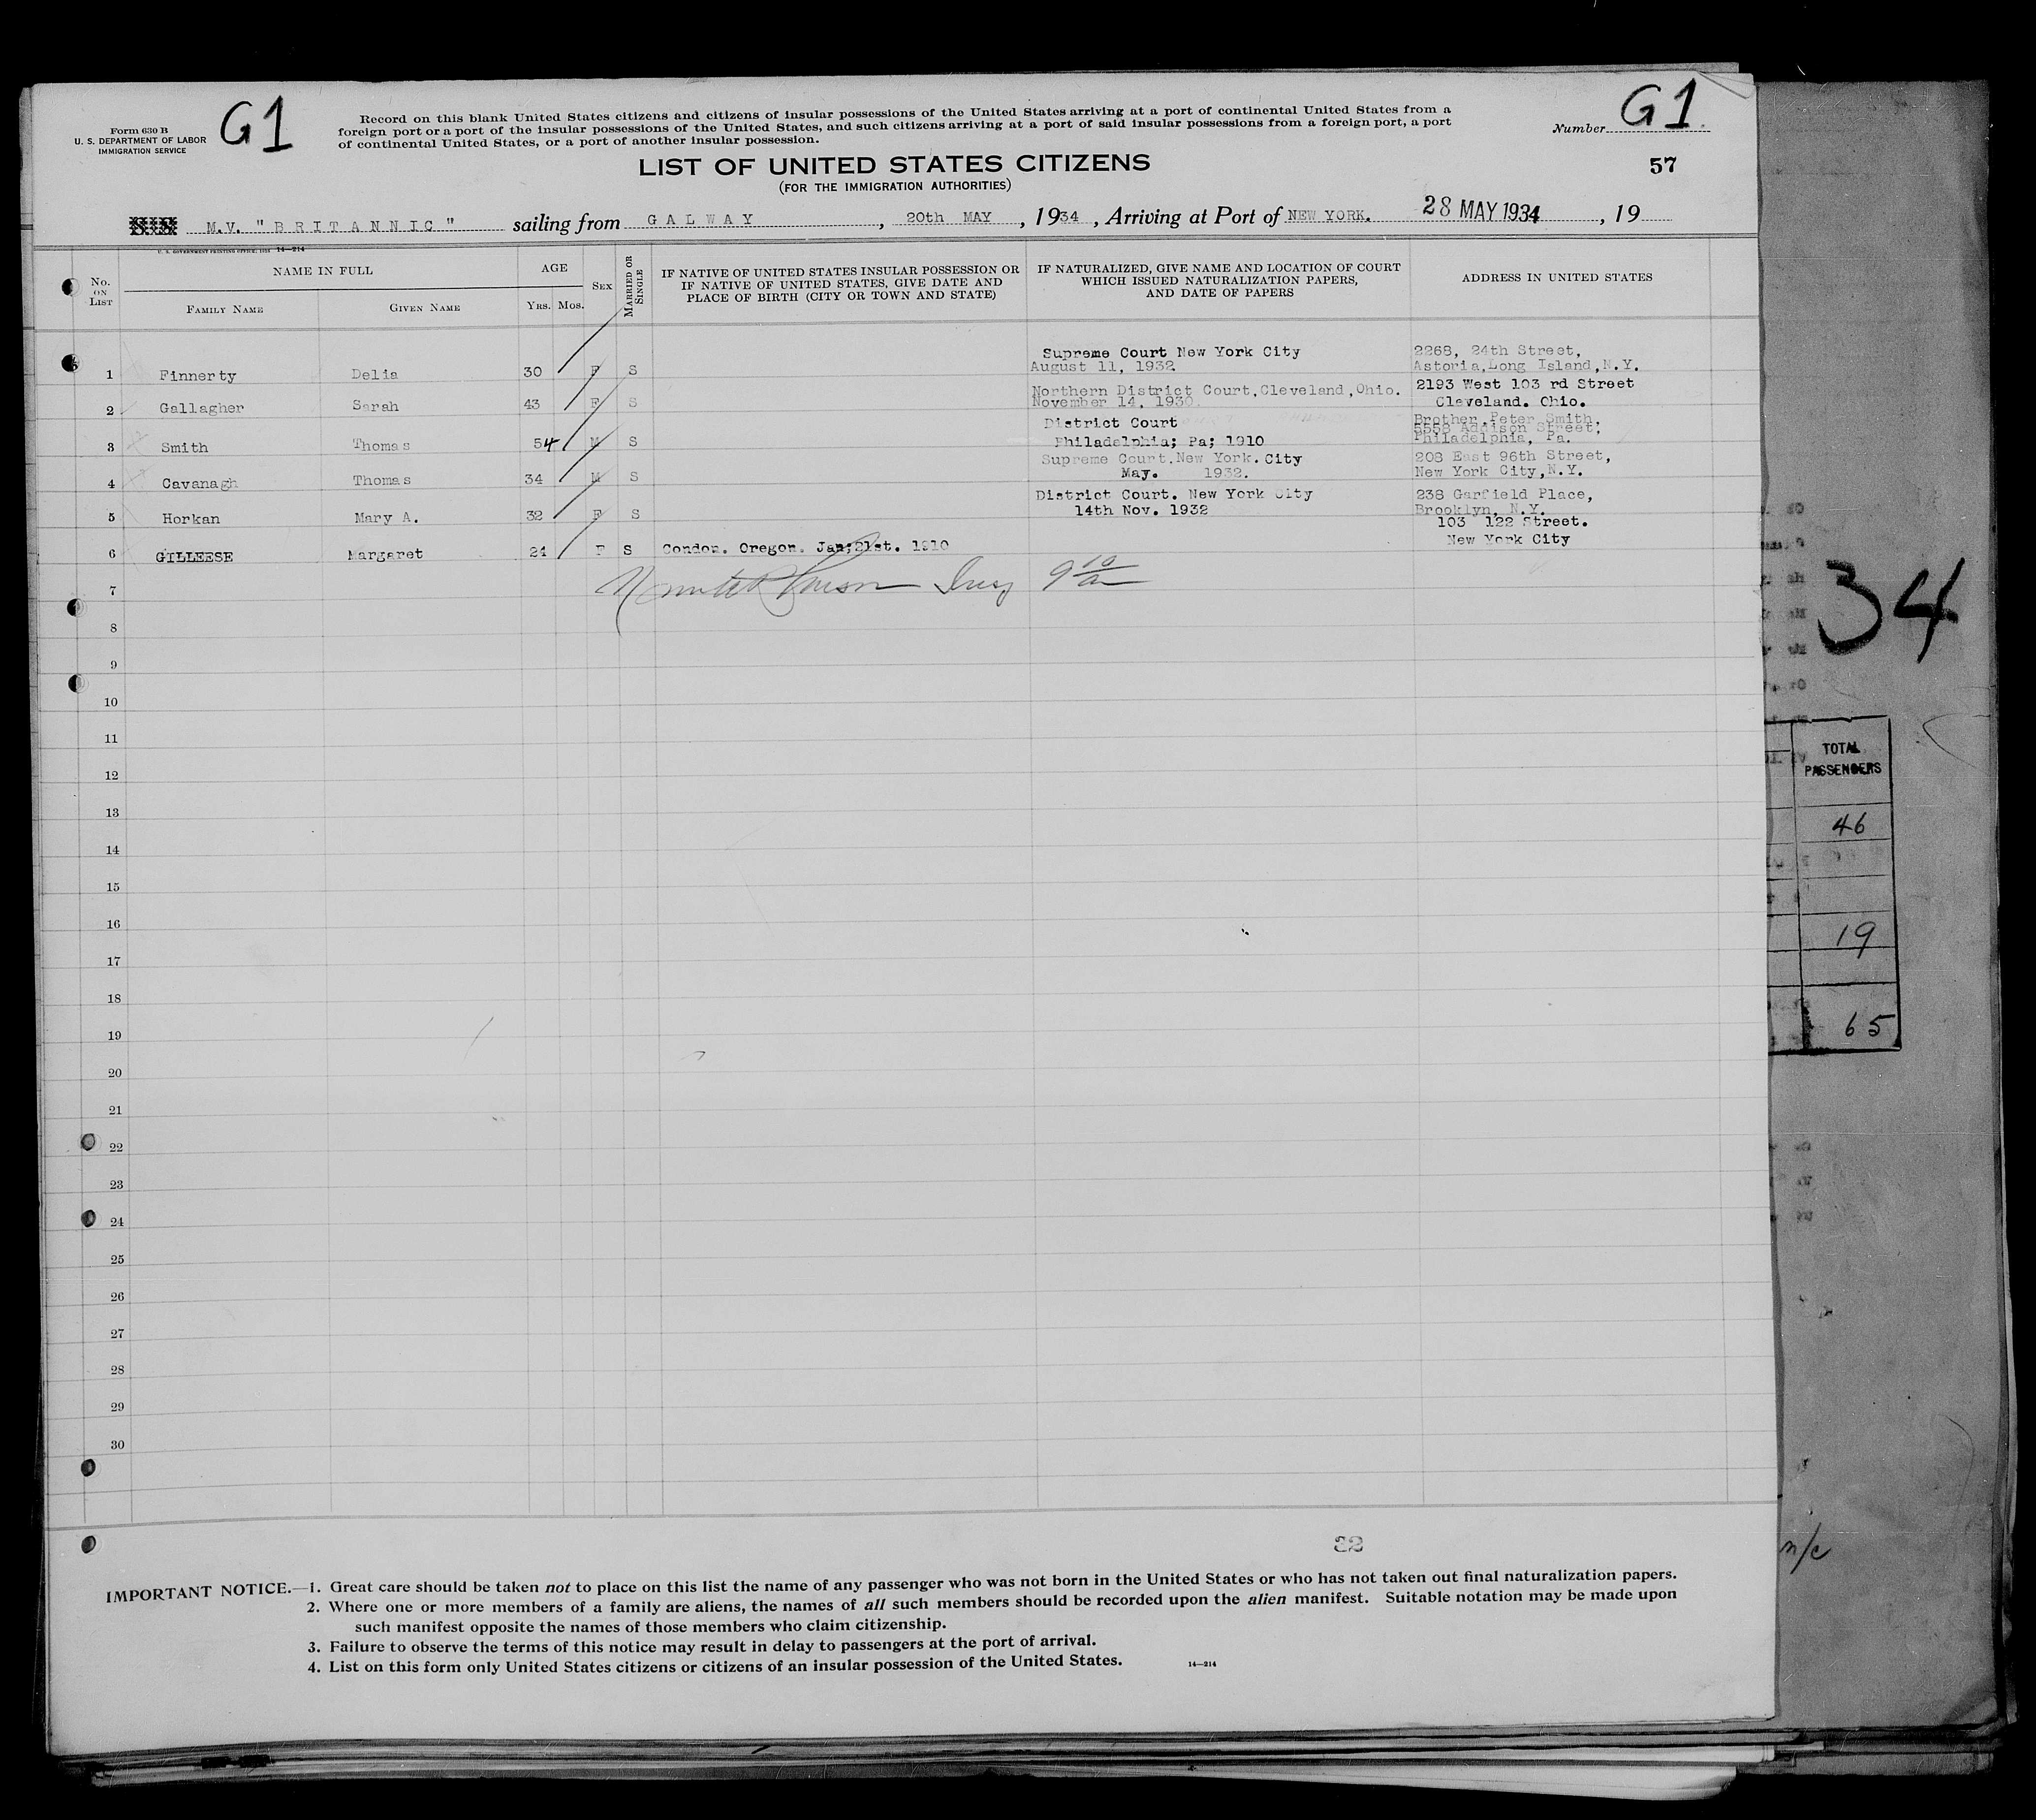 Form 630 B
U. S. DEPARTMENT OF LABOR
IMMIGRATION SERVICE
G1
Record on this blank United States citizens and citizens of insular possessions of the United States arriving at a port of continental United States from a
foreign port or a port of the insular possessions of the United States, and such citizens arriving at a port of said insular possessions from a foreign port, a port
of continental United States, or a port of another insular possession.
Number G1
LIST OF UNITED STATES CITIZENS
(FOR THE IMMIGRATION AUTHORITIES)
57
M.V. "BRITANNIC" sailing from GALWAY, 20th MAY, 1934, Arriving at Port of NEW YORK. 28 MAY 1934, 19
14—214
No. ON LIST
NAME IN FULL
FAMILY NAME
GIVEN NAME
AGE
YRS. MOS.
SEX
MARRIED OR SINGLE
IF NATIVE OF UNITED STATES INSULAR POSSESSION OR
IF NATIVE OF UNITED STATES, GIVE DATE AND
PLACE OF BIRTH (CITY OR TOWN AND STATE)
IF NATURALIZED, GIVE NAME AND LOCATION OF COURT
WHICH ISSUED NATURALIZATION PAPERS,
AND DATE OF PAPERS
ADDRESS IN UNITED STATES
1 Finnerty Delia 30 F S
Supreme Court New York City
August 11, 1932
2268, 24th Street,
Astoria,Long Island,N.Y.
2 Gallagher Sarah 43 F S
Northern District Court,Cleveland,Ohio.
November 14, 1930
2193 West 103 rd Street
Cleveland. Ohio.
3 Smith Thomas 54 M S
District Court
Philadelphia; Pa; 1910
Brother,Peter Smith,
5558 Addison Street,
Philadelphia, Pa.
4 Cavanagh Thomas 34 M S
Supreme Court,New York.City
May. 1932.
208 East 96th Street,
New York City,N.Y.
5 Horkan Mary A. 32 F S
District Court. New York City
14th Nov. 1932
238 Garfield Place,
Brooklyn, N.Y.
6 GILLEESE Margaret 24 F S Condon. Oregon. Jan;21st. 1910
103 122 Street.
New York City
7
8
9
10
11
12
13
14
15
16
17
18
19
20
21
22
23
24
25
26
27
28
29
30
32
IMPORTANT NOTICE.—1. Great care should be taken not to place on this list the name of any passenger who was not born in the United States or who has not taken out final naturalization papers.
2. Where one or more members of a family are aliens, the names of all such members should be recorded upon the alien manifest. Suitable notation may be made upon
such manifest opposite the names of those members who claim citizenship.
3. Failure to observe the terms of this notice may result in delay to passengers at the port of arrival.
4. List on this form only United States citizens or citizens of an insular possession of the United States.
14—214
34
TOTAL
PASSENGERS
46
19
65
n/c